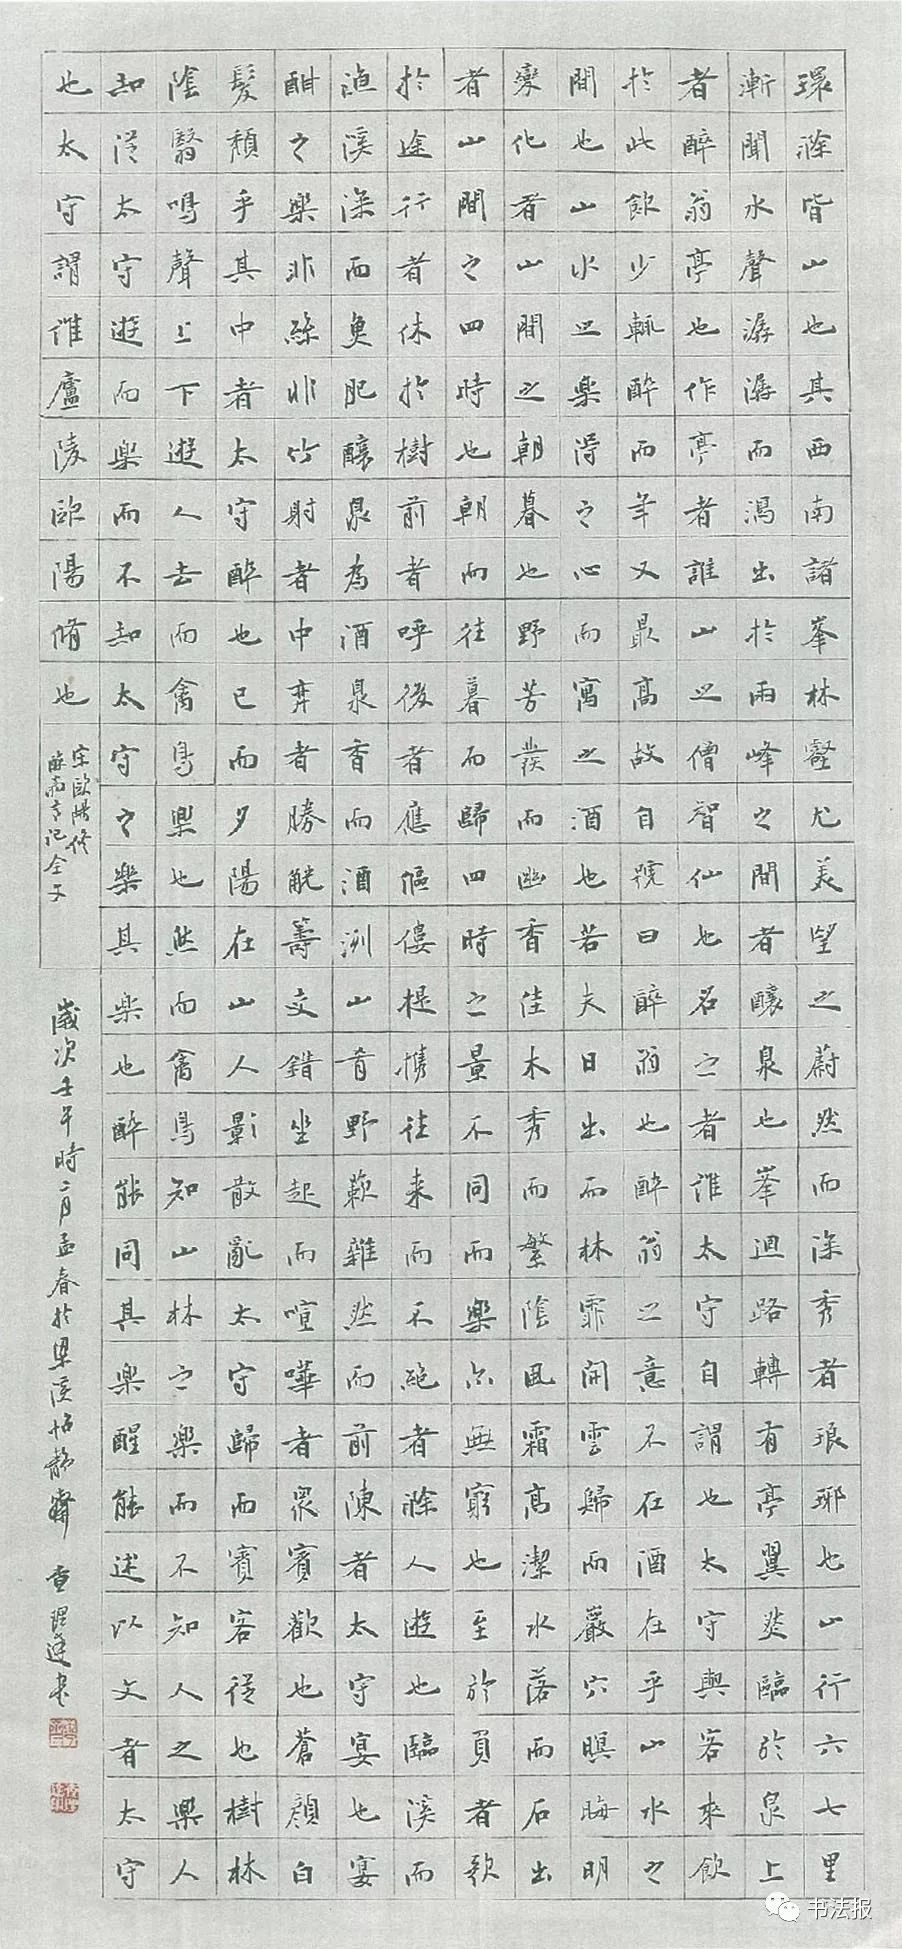 環滁皆山也其西南諸峯林壑尤美望之蔚然而深秀者琅琊也山行六七里
漸聞水聲潺潺而瀉出於兩峰之間者釀泉也峯迴路轉有亭翼然臨於泉上
者醉翁亭也作亭者誰山之僧智仙也名之者誰太守自謂也太守與客來飲
於此飲少輒醉而年又最高故自號曰醉翁也醉翁之意不在酒在乎山水之
間也山水之樂得之心而寓之酒也若夫日出而林霏開雲歸而巖穴暝晦明
變化者山間之朝暮也野芳發而幽香佳木秀而繁陰風霜高潔水落而石出
者山間之四時也朝而往暮而歸四時之景不同而樂亦無窮也至於負者歌
於途行者休於樹前者呼後者應傴僂提攜往来而不絕者滁人遊也臨溪而
漁溪深而魚肥釀泉為酒泉香而酒洌山肴野蔌雜然而前陳者太守宴也宴
酣之樂非絲非竹射者中弈者勝觥籌交錯坐起而喧嘩者眾賓歡也蒼顏白
髮頹乎其中者太守醉也已而夕陽在山人影散亂太守歸而賓客從也樹林
陰翳鳴聲上下遊人去而禽鳥樂也然而禽鳥知山林之樂而不知人之樂人
知從太守遊而樂而不知太守之樂其樂也醉能同其樂醒能述以文者太守
也太守謂誰廬陵歐陽脩也
宋歐陽修
醉翁亭記全文
歲次壬午時二月孟春於梁溪怡靜齋
書法报